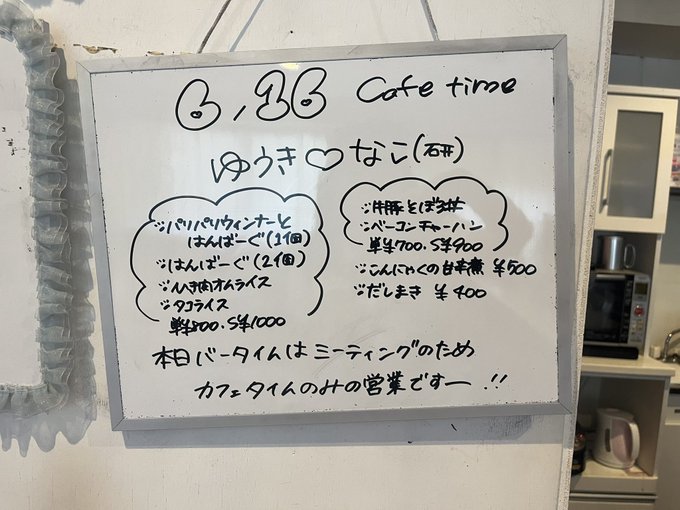 6,16 Cafe time
ゆうき♡なこ(研)
※パリパリウィンナーと
はんばーぐ(1個)
※はんばーぐ(2個)
※ひき肉オムライス
※タコライス
単¥800.S¥1000
※牛豚そぼろ丼
※ベーコンチャーハン
単¥700.S¥900
※こんにゃくの甘辛煮 ¥500
※だしまき ¥400
本日バータイムはミーティングのため
カフェタイムのみの営業ですー!!